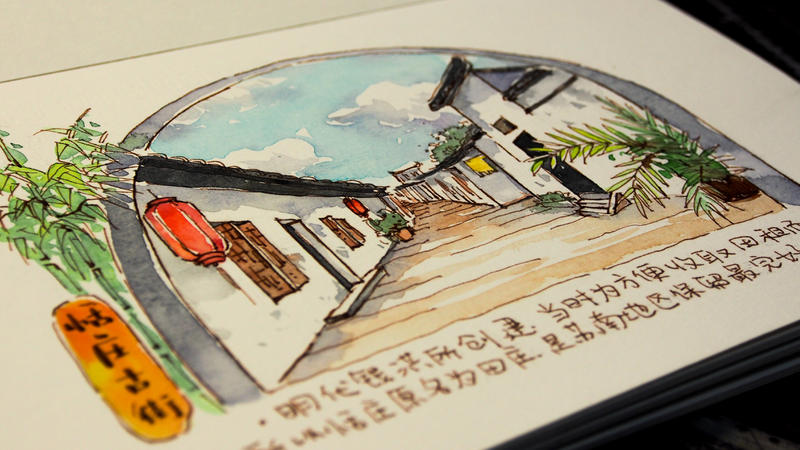 恬庄古街
·明代钱洪所创建.当时为方便收取田租
恬庄原名为田庄.是苏南地区保留最完好